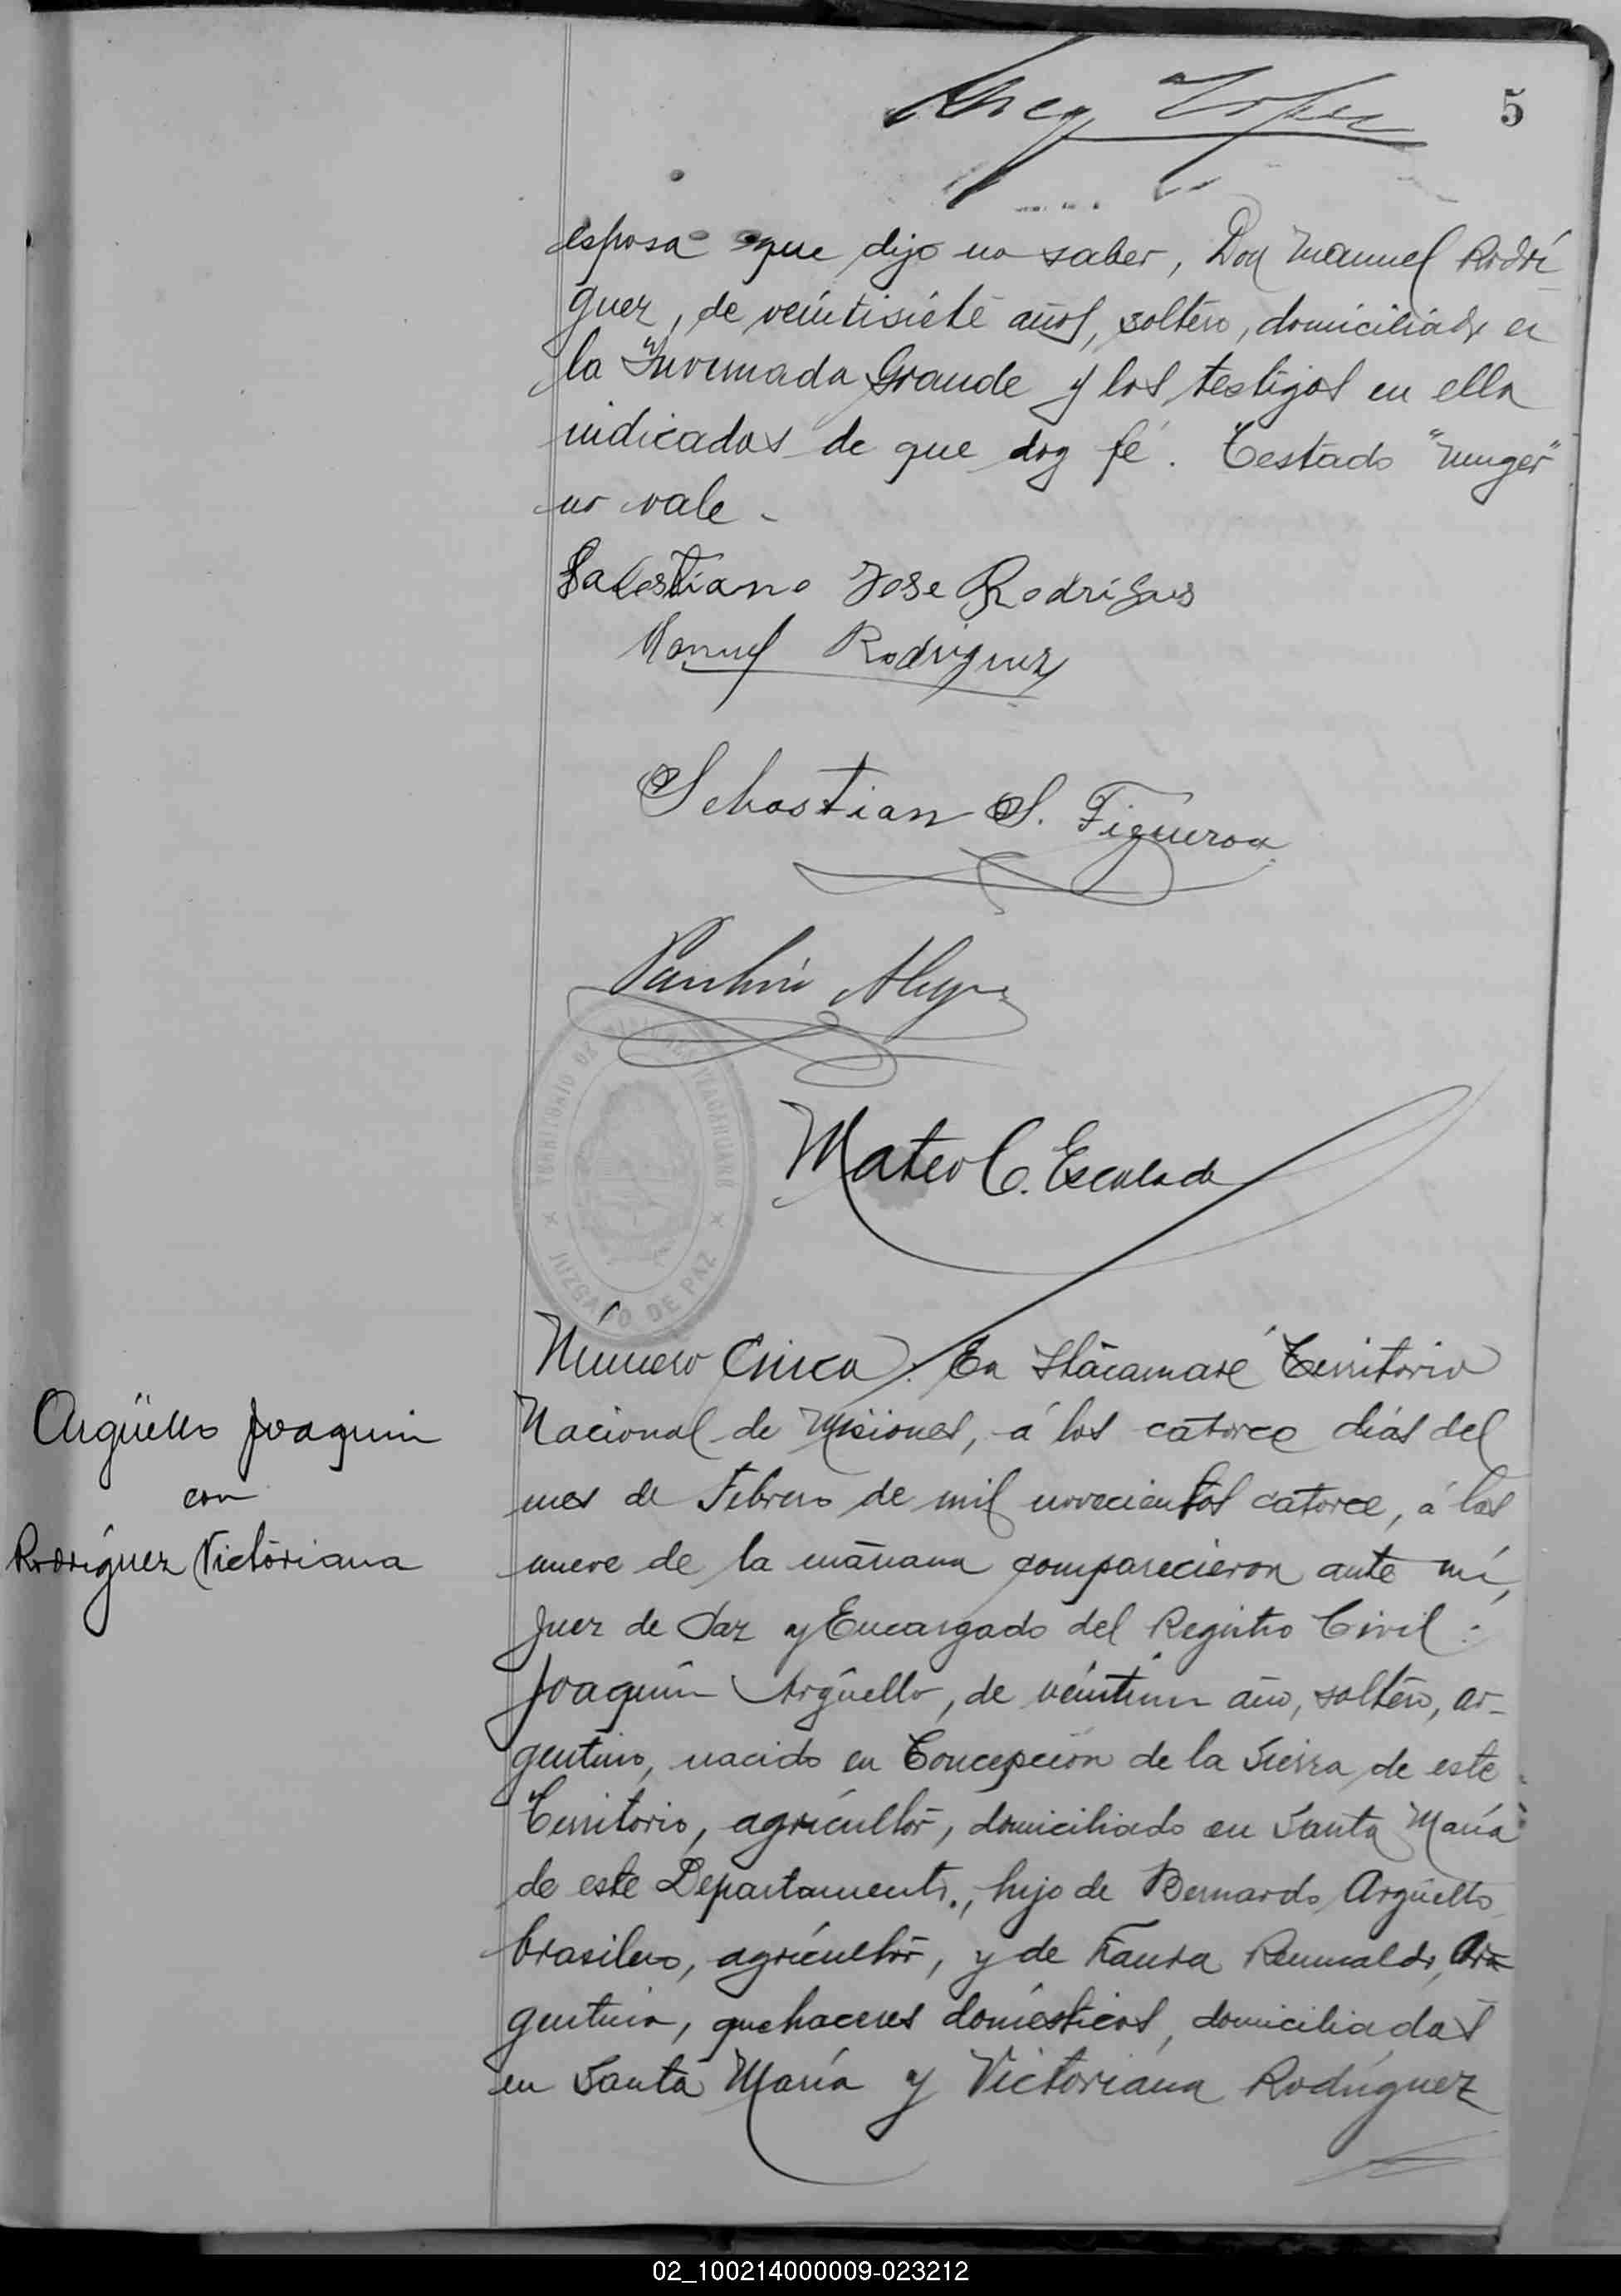 5
esposa que dijo no saber, Don Manuel Rodrí
guez, de veintisiete años, soltero, domiciliado en
la Invernada Grande y los testigos en ella
indicados de que doy fé. Testado "muger"
no vale -
Jose Rodrigues
Manuel Rodriguez
Sebastian S. Figueroa
Mateo C. Escalada
TERRITORIO DE
JUZGADO DE PAZ
Numero Cinco. En Itacaruaré Territorio
Argüello Joaquin
con
Rodriguez Victoriana
Nacional de Misiones, á los catorce dias del
mes de Febrero de mil novecientos catorce, á las
nueve de la mañana comparecieron ante mí,
Juez de Paz y Encargado del Registro Civil:
Joaquin Argüello, de veintiun año, soltero, ar-
gentino, nacido en Concepción de la Sierra de este
Territorio, agricultor, domiciliado en Santa María
de este Departamento., hijo de Bernardo Argüello
brasilero, agricultor, y de Fausta Ar-
gentina, quehaceres domésticos, domiciliados
en Santa María y Victoriana Rodriguez
02_100214000009-023212